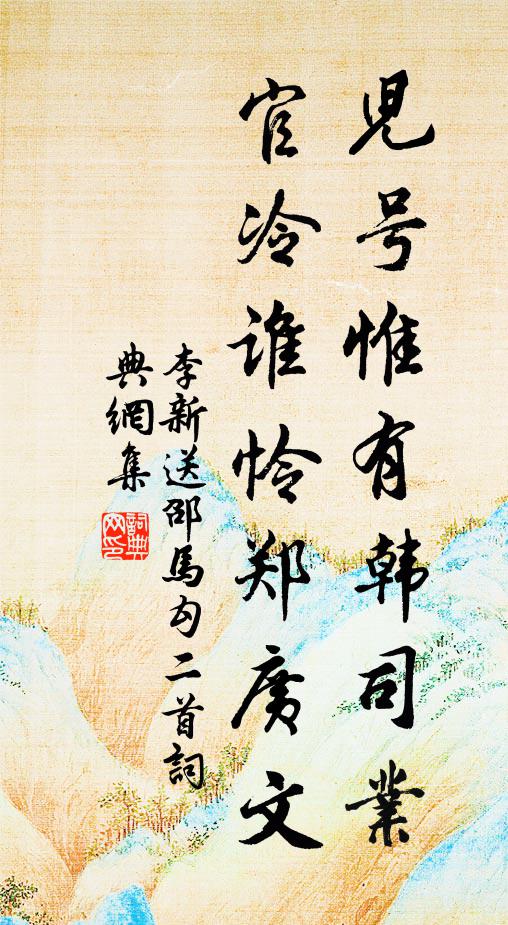 児号惟有韩司業
官冷谁怜郑廣文
李新送邵馬勾二首詞
典網集
詞典網印